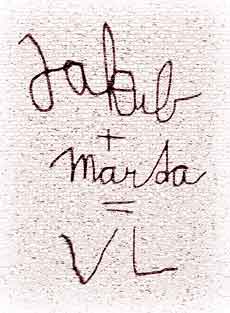 Jakub
+
marta
=
VL